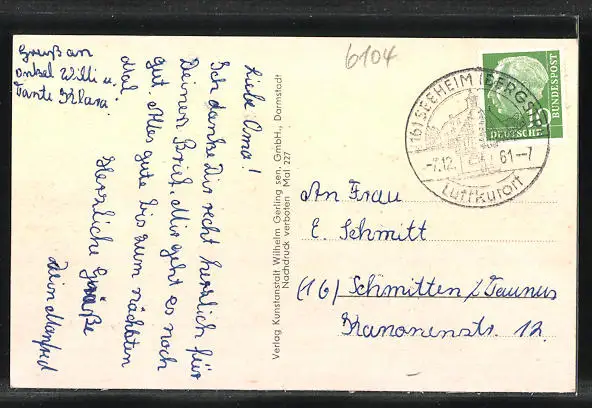 Gruß an
Onkel Willi u.
Tante Klara!
Liebe Oma!
Ich danke Dir recht herzlich für
Deinen Brief. Mir geht es noch
gut. Alles gute bis zum nächsten
mal
Herzliche Grüße
Dein Manfred
Verlag Kunstanstalt Wilhelm Gerling sen. GmbH., Darmstadt
Nachdruck verboten Mal 227
6104
(16) SEEHEIM (BERGSTR
-7.12. 61--7
Luftkurort
DEUTSCHE BUNDESPOST
10
An Frau
E. Schmitt
(16) Schmitten /Taunus
Kanonenstr. 12.